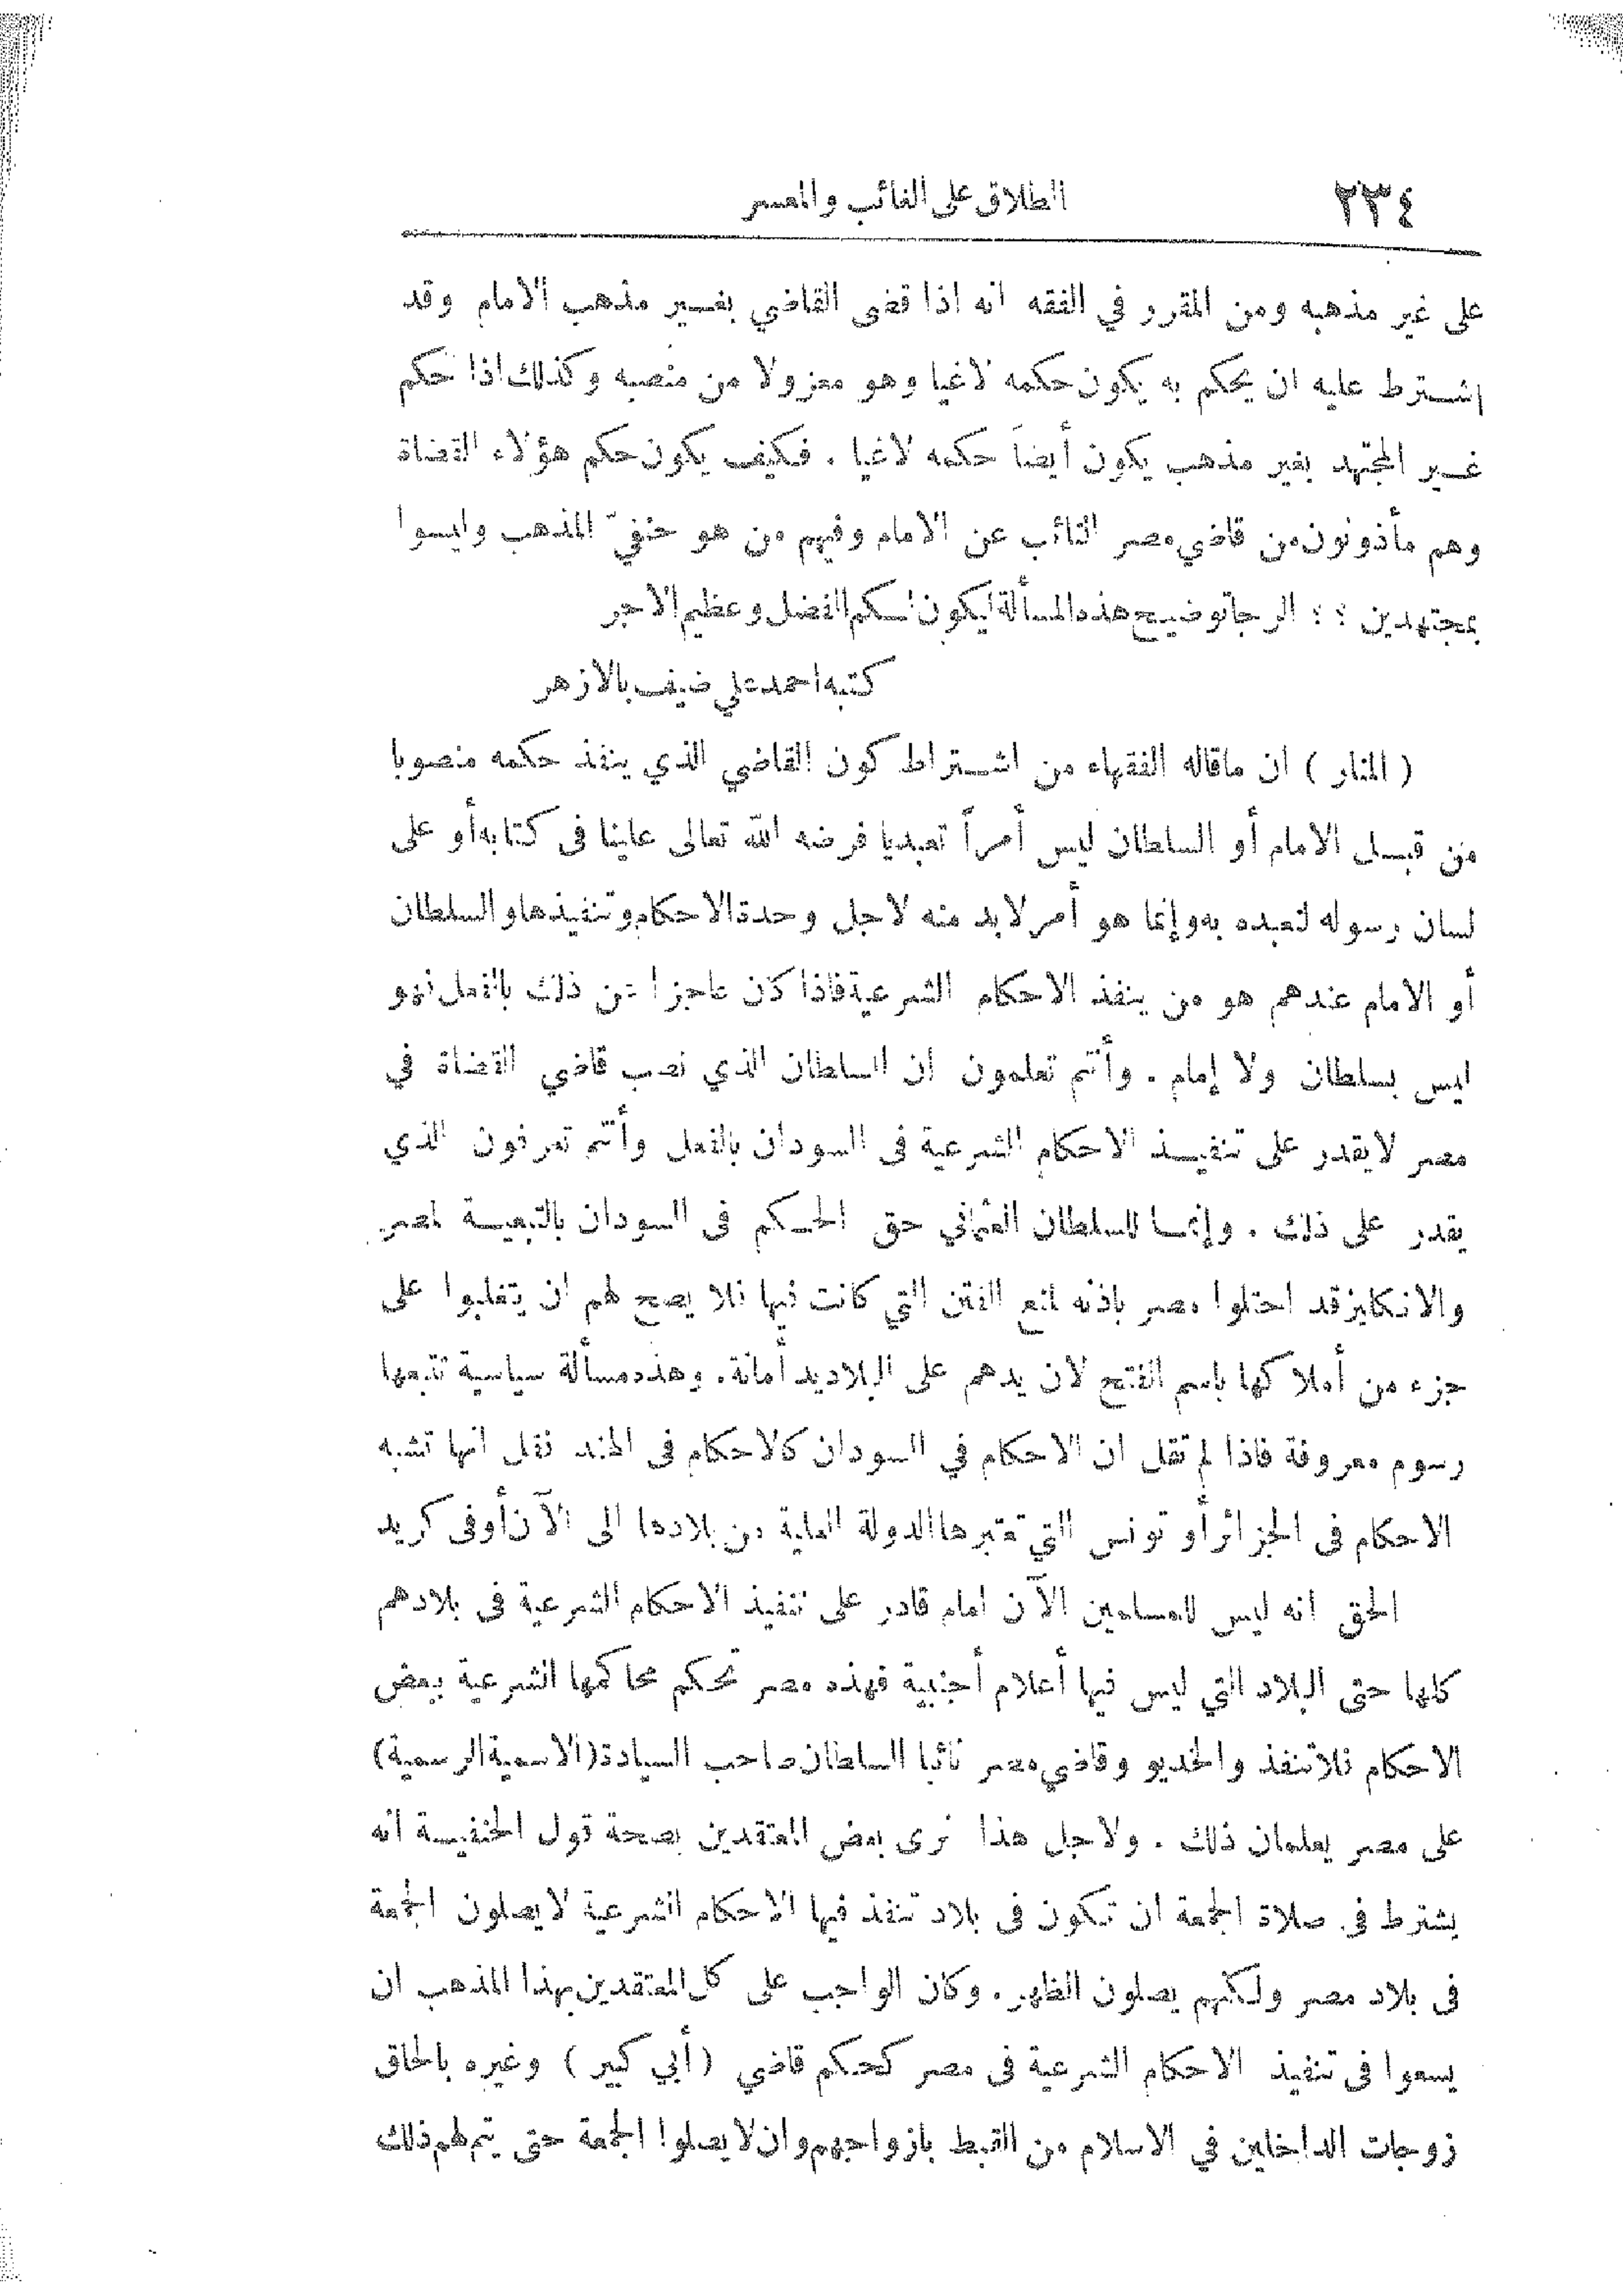 ٢٣٤
الطلاق على الغائب والمعسر
على غير مذهبه ومن المقرر في الفقه انه اذا قضى القاضي بغير مذهب الامام وقد
اشترط عليه ان يحكم به يكون حكمه لاغيا وهو معزولا من منصبه وكذلك اذا حكم
غير المجتهد بغير مذهب يكون أيضاً حكمه لاغيا . فكيف يكون حكم هؤلاء القضاة
وهم مأذونون من قاضي مصر النائب عن الامام وفيهم من هو حنفيّ المذهب وليسوا
بمجتهدين ؛ ؛ الرجا توضيح هذه المسألة ليكون لكم الفضل وعظيم الاجر
كتبه احمد علي ضيف بالازهر
( المنار ) ان ماقاله الفقهاء من اشتراط كون القاضي الذي ينفذ حكمه منصوبا
من قبل الامام أو السلطان ليس أمراً تعبديا فرضه الله تعالى علينا فى كتابه أو على
لسان رسوله لنعبده به وإنما هو أمر لابد منه لاجل وحدة الاحكام وتنفيذها والسلطان
أو الامام عندهم هو من ينفذ الاحكام الشرعية فاذا كان عاجزا عن ذلك بالفعل فهو
ليس بسلطان ولا إمام . وأنتم تعلمون ان السلطان الذي نصب قاضي القضاة في
مصر لايقدر على تنفيذ الاحكام الشرعية فى السودان بالفعل وأنتم تعرفون الذي
يقدر على ذلك . وإنما للسلطان العثماني حق الحكم فى السودان بالتبعية لمصر
والانكليز قد احتلوا مصر باذنه لمنع الفتن التي كانت فيها فلا يصح لهم ان يتغلبوا على
جزء من أملاكها باسم الفتح لان يدهم على البلاد يد أمانة. وهذه مسألة سياسية تتبعها
رسوم معروفة فاذا لم تقل ان الاحكام في السودان كالاحكام فى الهند نقل انها تشبه
الاحكام فى الجزائر أو تونس التي تعتبرها الدولة العلية من بلادها الى الآن أو فى كريد
الحق انه ليس للمسلمين الآن امام قادر على تنفيذ الاحكام الشرعية فى بلادهم
كلها حتى البلاد التي ليس فيها أعلام أجنبية فهذه مصر تحكم محاكمها الشرعية ببعض
الاحكام فلا تنفذ والخديو وقاضي مصر نائبا السلطان صاحب السيادة (الاسمية الرسمية)
على مصر يعلمان ذلك . ولاجل هذا نرى بعض المعتقدين بصحة قول الحنفية انه
يشترط فى صلاة الجمعة ان تكون فى بلاد تنفذ فيها الاحكام الشرعية لايصلون الجمعة
فى بلاد مصر ولكنهم يصلون الظهر. وكان الواجب على كل المعتقدين بهذا المذهب ان
يسعوا فى تنفيذ الاحكام الشرعية فى مصر كحكم قاضي (أبي كبير) وغيره بالحاق
زوجات الداخلين في الاسلام من القبط بازواجهم وان لايصلوا الجمعة حتى يتم لهم ذلك